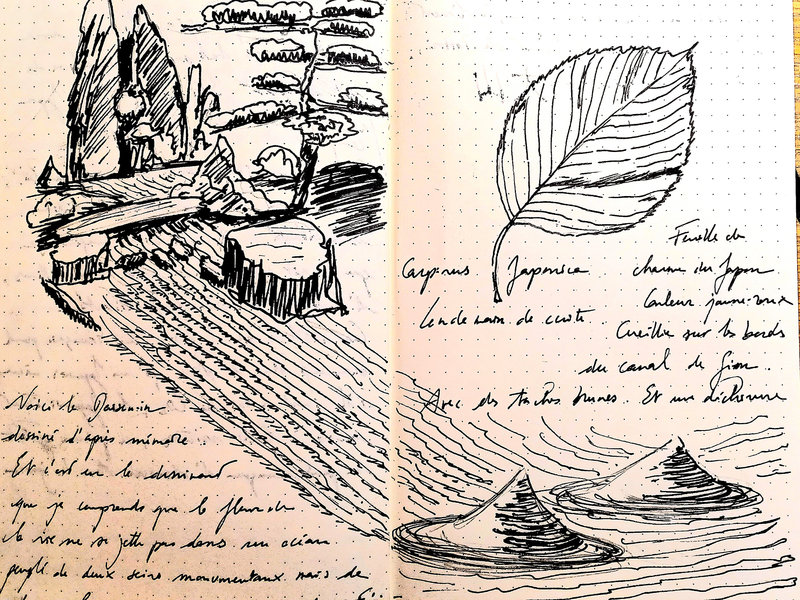 Voici le Daisen-in
dessiné d'après mémoire.
Et c'est en le dessinant
que je comprends que le fleuve de
la vie ne se jette pas dans un océan
peuplé de deux seins monumentaux mais de
Feuille de
Carpinus Japonica charme du Japon
Couleur jaune-roux
Lendemain de cuite. Cueillie sur les bords
du canal de Gion.
Avec des taches brunes. Et une